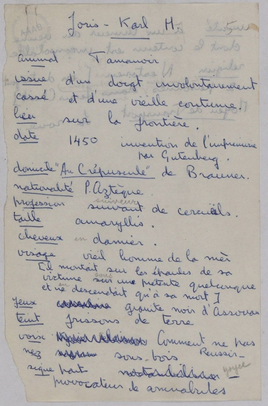 Joris-Karl H.
animal Tamanoir
issue d'un doigt involontairement
cassé et d'une vieille coutume.
lieu sur la frontière.
date 1450 invention de l'imprimerie
par Gutenberg.
domicile "Au Crépuscule" de Brauner.
nationalité P. Aztèque.
profession suivant de cercueils.
taille amaryllis.
cheveux damiés.
visage vieil homme de la mer
[il montait sur les épaules de sa
victime sous un prétexte quelconque
et ne descendait qu'à sa mort]
yeux granite noir d'Assouan
teint frissons de terre
voix Comment ne pas
nez sous-bois Réussir
signe part
provocateur de somnambules